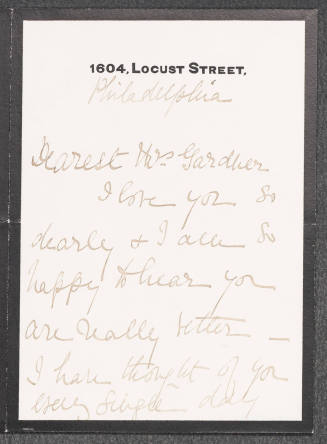 1604, LOCUST STREET,
Philadelphia
Dearest Mrs Gardner
I love you so
dearly & I am so
happy to hear you
are really better —
I have thought of you
every single day